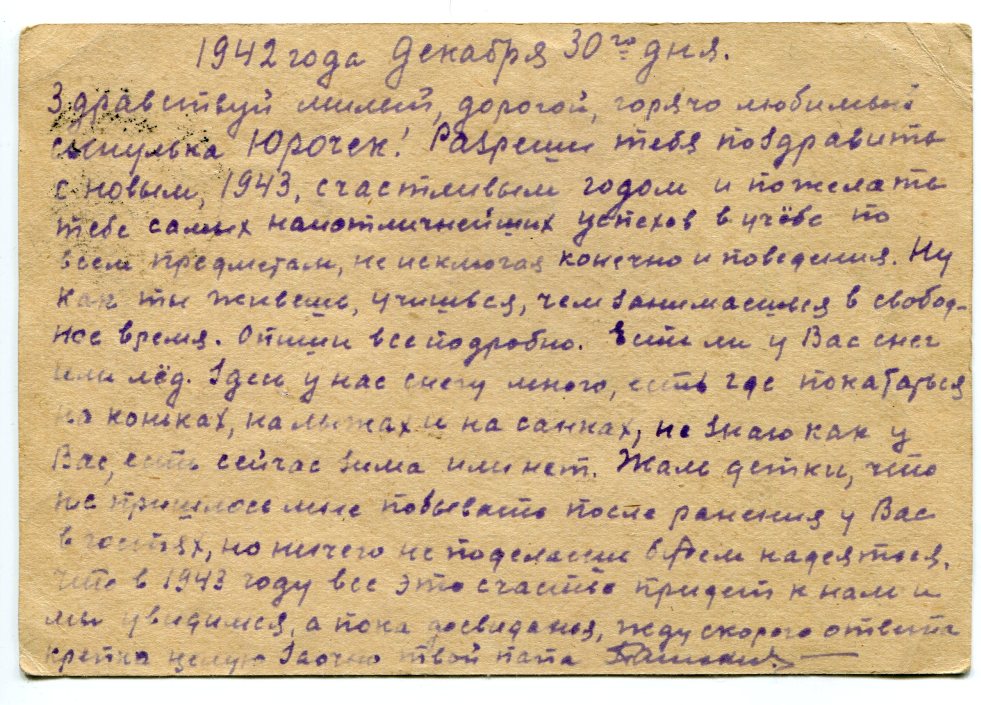 1942 года Декабря 30го дня.
Здравствуй милый, дорогой, горячо любимый
сынулька Юрочек! Разреши тебя поздравить
с новым, 1943, счастливым годом и пожелать
тебе самых наиотличнейших успехов в учёбе по
всем предметам, не исключая конечно и поведения. Ну
как ты живешь, учишься, чем занимаешься в свобод-
ное время. Опиши все подробно. Есть ли у Вас снег
или лёд. Здесь у нас снегу много, есть где покататься
на коньках, на лыжах и на санках, не знаю как у
Вас, есть сейчас зима или нет. Жаль детки, что
не пришлось мне побывать после ранения у Вас
в гостях, но ничего не поделаешь будем надеяться,
что в 1943 году все это счастье придет к нам и
мы увидимся, а пока досвиданья, жду скорого ответа
крепко целую заочно твой папа